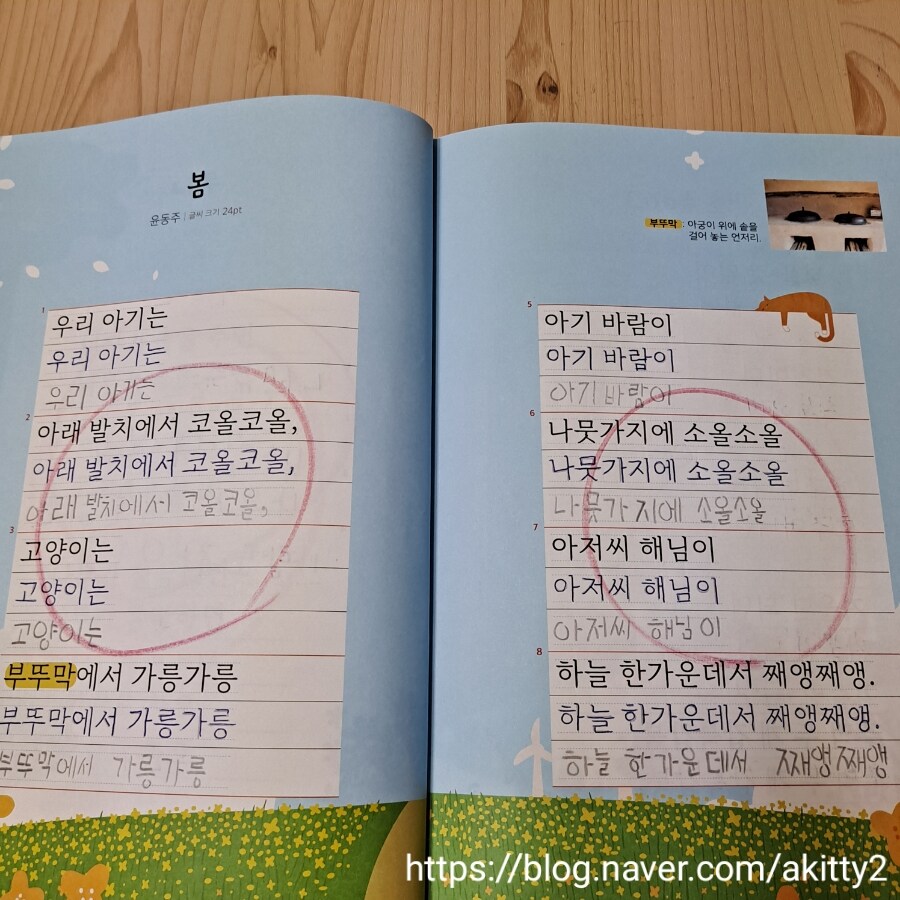 봄
윤동주 | 글씨 크기 24pt
1
우리 아기는
우리 아기는
우리 아기는
2
아래 발치에서 코올코올,
아래 발치에서 코올코올,
아래 발치에서 코올코올,
3
고양이는
고양이는
고양이는
부뚜막에서 가릉가릉
부뚜막에서 가릉가릉
부뚜막에서 가릉가릉
부뚜막 : 아궁이 위에 솥을
걸어 놓는 언저리.
5
아기 바람이
아기 바람이
아기 바람이
6
나뭇가지에 소올소올
나뭇가지에 소올소올
나뭇가지에 소올소올
7
아저씨 해님이
아저씨 해님이
아저씨 해님이
8
하늘 한가운데서 째앵째앵.
하늘 한가운데서 째앵째앵.
하늘 한가운데서 째앵째앵
https://blog.naver.com/akitty2